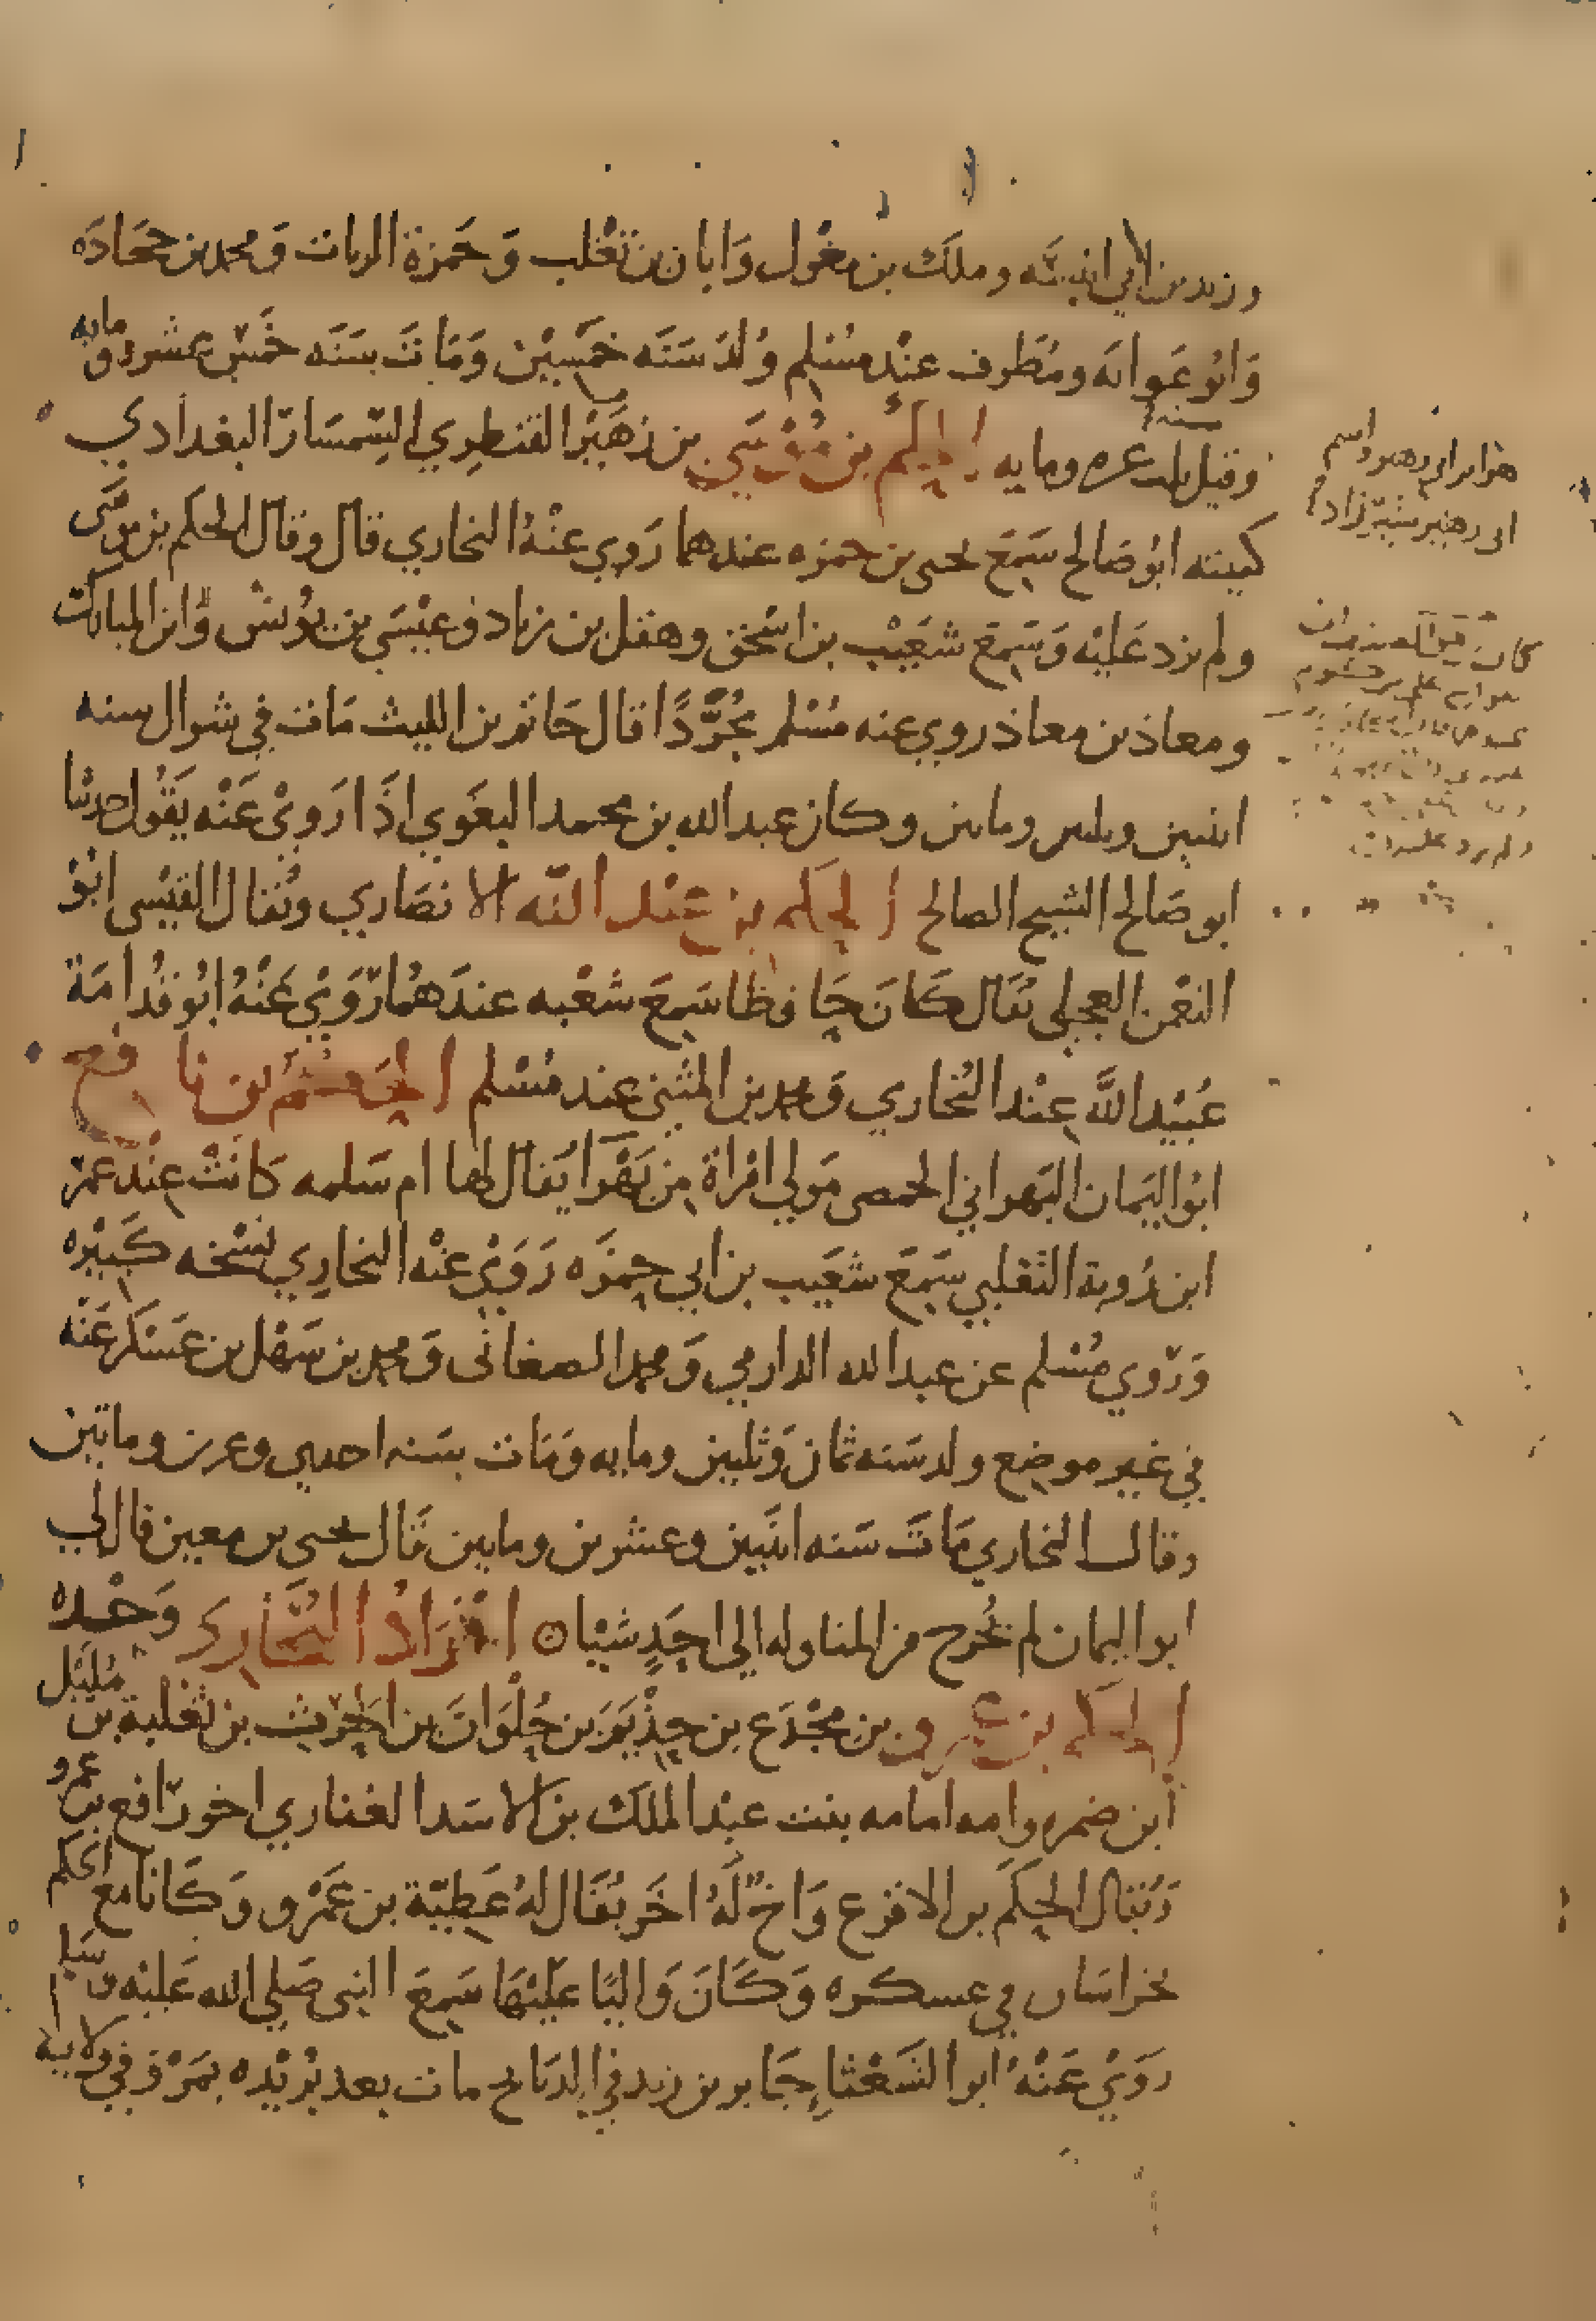 وزيد بن ابي انيسَه وملك بن مغْول وَابان بن تغْلب وَحَمزة الزيات وَمحمد بن جحَادَه
وَابو عَوانَه ومُطَرف عنْد مسُلم وُلدَ سَنَه خمَسِيْن وَمَات سَنَه خمَسْ عشره ومايه
وقيل سنة اربع عشره ومايه الحكمُ بن مُوْسَي بن زهَيْر القنطِري السِّمسَار البغدادي
كنيته ابوُ صَالح سَمعَ يحيى بن حمزه عندهما رَوي عنْهُ البخاري قال وقال الحكم بن موسَى
ولم يزد عَليْه وَسَمعَ شعَيْب بن اسْحق وهقل بن زياد وعيْسَي بن يوُنسْ وَابن المبارك
ومعاذ بن معاذ روي عنه مسُلم مجُرَّدًا قال حَاتم بن الليث مَات في شوال سنه
اثنين وثلثين ومايتين وكان عبد الله بن محمد البغَوي اذَا رَويْ عَنْه يقَوُل حدثنا
ابو صَالح الشيح الصالح الحكم بن عبْد الله الانصَاري وَيُقال القيْسى ابوُ
النعْمن العجلي يُقَال كَانَ حَافظا سَمعَ شعْبه عندَهمُا رَوَيْ عَنْهُ ابوُ قدُامَة
عُبَيْد اللَّه عِنْد البُخاري وَمحمد بن المثنى عند مسُلم الحكم بن نافع
ابوُ اليَمان البَهراني الحمصى مَولي امْراة من بَهْرَا يُقال لها ام سَلمه كانتْ عِنْد عمرَ
ابن رُوبة الثغلبي سَمعَ شعَيب بن ابي حمزَه رَوَيْ عنْه البخاري نسْخه كَبيْره
وَرَوي مسُلم عن عبد الله الدارمي وَمحمد الصغانى وَمحمد بن سَهْل بن عَسْكر عَنْه
في غيْر موضع ولد سَنه ثمان وَثلثين ومايه وَمَات سَنه احدي وعشرين ومايتين
وقال البخاري مَات سَنه اثنَين وعشرين ومايتين قَال يحيى بن معين قال لي
ابو اليمان لم يُخرج من المناوله الي احَدٍ شيْيا افْرَادُ البُخَاري وَحْده
الحكم بن عَمرو بن مجْدَع بن حذْيَم بن حُلْوَان بن الحرث بن ثعْلبة بن مُليَل
ابن ضمره وامه امامه بنت عبْد الملك بن الاسَد الغفاري اخو رَافع بن عمرو
وَيُقال الحكَم بن الاقرع وَاخٌ لَهُ اخَر يُقَال لهُ عَطِيّة بن عَمْرو وَكَانا مع الحكم
بخراسَان في عسكره وَكَانَ وَاليًا عَلَيْهَا سَمعَ النبى صَلي الله عَليْه وسَلم
رَوَيْ عَنْهُ ابو الشَعْثاءِ جَابر بن زيد في الذبَايح مات بعد بُرَيْده بمَرْو في ولاية